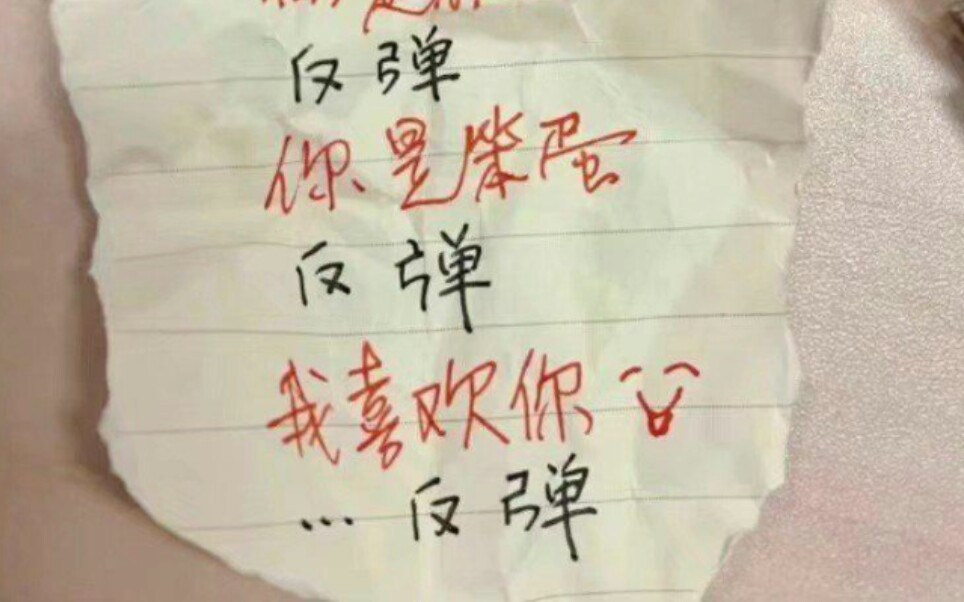 反弹
你是笨蛋
反弹
我喜欢你
…反弹